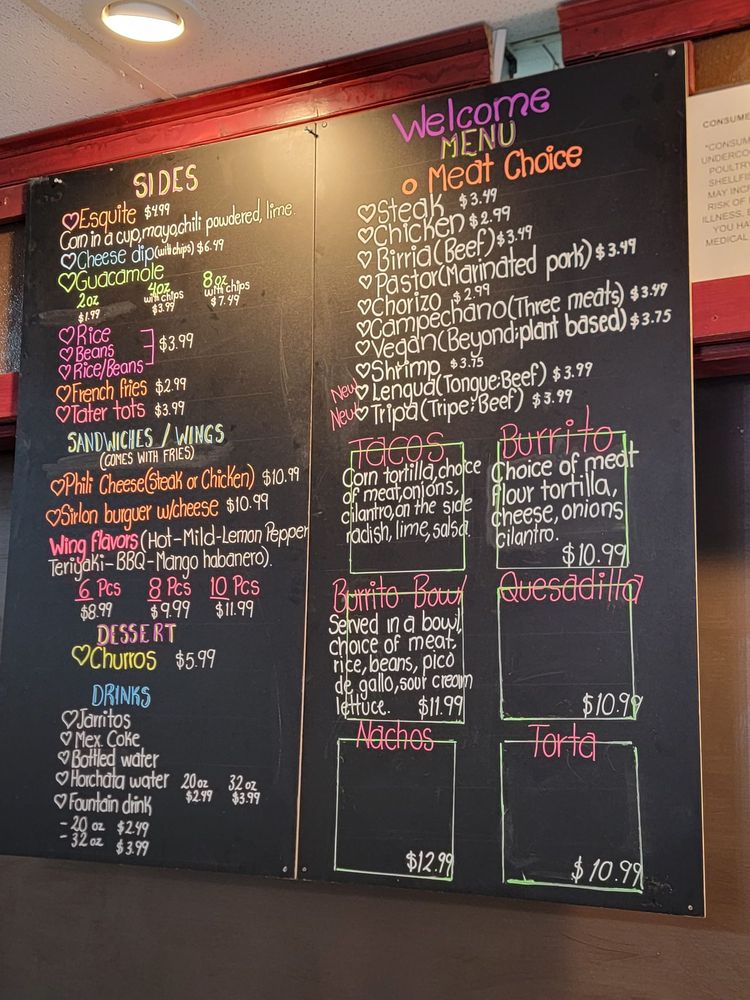 SIDES
Esquite $4.99
Corn in a cup, mayo, chili powdered, lime.
Cheese dip (with chips) $6.49
Guacamole
2oz 4oz 8oz
with chips with chips
$1.99 $3.99 $7.49
Rice
Beans $3.99
Rice/Beans
French fries $2.99
Tater tots $3.99
SANDWICHES / WINGS
(COMES WITH FRIES)
Phili Cheese(Steak or Chicken) $10.99
Sirlon burguer w/cheese $10.99
Wing flavors (Hot-Mild-Lemon Pepper
Teriyaki-BBQ-Mango habanero).
6 Pcs 8 Pcs 10 Pcs
$8.99 $9.99 $11.99
DESSERT
Churros $5.99
DRINKS
Jarritos
Mex. Coke
Bottled water
Horchata water 20oz 32oz
$2.99 $3.99
Fountain drink
- 20 oz $2.49
- 32 oz $3.99
Welcome
MENU
Meat Choice
Steak $3.49
Chicken $2.99
Birria (Beef) $3.49
Pastor (Marinated pork) $3.49
Chorizo $2.99
Campechano (Three meats) $3.99
Vegan (Beyond;plant based) $3.75
Shrimp $3.75
New Lengua (Tongue;Beef) $3.99
New Tripa (Tripe;Beef) $3.99
TACOS
Corn tortilla, choice
of meat, onions,
cilantro, on the side
radish, lime, salsa.
Burrito
Choice of meat
flour tortilla,
cheese, onions
cilantro.
$10.99
Burrito Bowl
Served in a bowl,
choice of meat.
rice, beans, pico
de gallo, sour cream
lettuce. $11.99
Quesadilla
$10.99
Nachos
$12.99
Torta
$10.99
CONSUME
"CONSUM
UNDERCO
POULTRY
SHELLFIS
MAY INC
RISK OF
ILLNESS,
YOU HA
MEDICAL